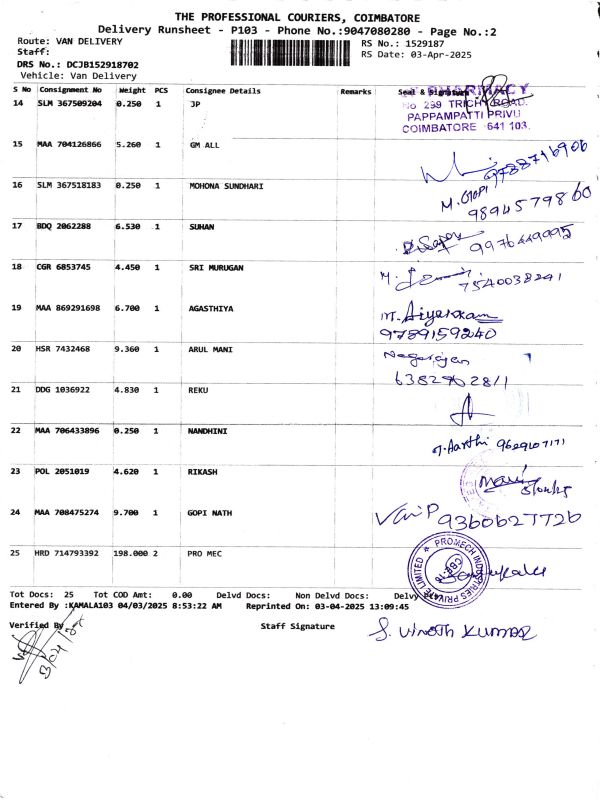 THE PROFESSIONAL COURIERS, COIMBATORE
Delivery Runsheet - P103 - Phone No.:9047080280 - Page No.:2
Route: VAN DELIVERY RS No.: 1529187
Staff: RS Date: 03-Apr-2025
DRS No.: DCJB152918702
Vehicle: Van Delivery
S No Consignment No Weight PCS Consignee Details Remarks Seal & Signature
14 SLM 367509204 0.250 1 JP PHARMACY
No 299 TRICHY ROAD.
PAPPAMPATTI PRIVU
COIMBATORE 641 103.
15 MAA 704126866 5.260 1 GM ALL 9788716906
16 SLM 367518183 0.250 1 MOHONA SUNDHARI M. GOPI
9894579860
17 BDQ 2062288 6.530 1 SUHAN 9976449995
18 CGR 6853745 4.450 1 SRI MURUGAN M. 7540038291
19 MAA 869291698 6.700 1 AGASTHIYA M. Aiyerkkam
9789159240
20 HSR 7432468 9.360 1 ARUL MANI Nagarajan
6382902811
21 DDG 1036922 4.830 1 REKU
22 MAA 706433896 0.250 1 NANDHINI Aarthi 9629107171
23 POL 2051019 4.620 1 RIKASH Mani
24 MAA 708475274 9.700 1 GOPI NATH 9360627726
25 HRD 714793392 198.000 2 PRO MEC PROMECH INDUSTRIES PRIVATE LIMITED
CBE-16
Tot Docs: 25 Tot COD Amt: 0.00 Delvd Docs: Non Delvd Docs: Delvy
Entered By :KAMALA103 04/03/2025 8:53:22 AM Reprinted On: 03-04-2025 13:09:45
Verified By Staff Signature S. VINOTH KUMAR
3/04/25